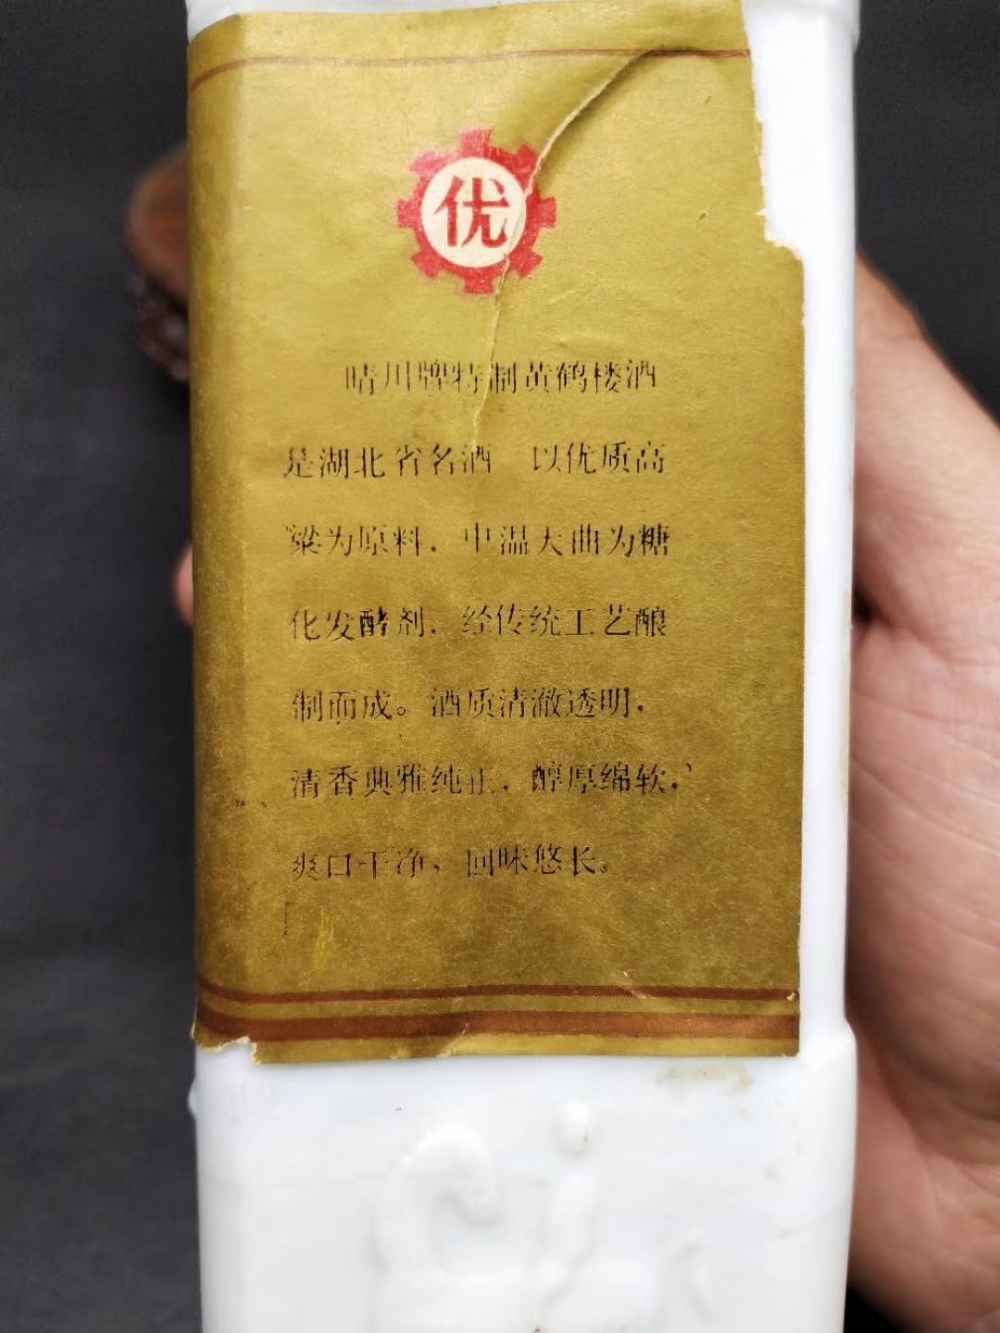 优
晴川牌特制黄鹤楼酒
是湖北省名酒 以优质高
粱为原料．中温大曲为糖
化发酵剂．经传统工艺酿
制而成。酒质清澈透明，
清香典雅纯正．醇厚绵软，
爽口干净，回味悠长。